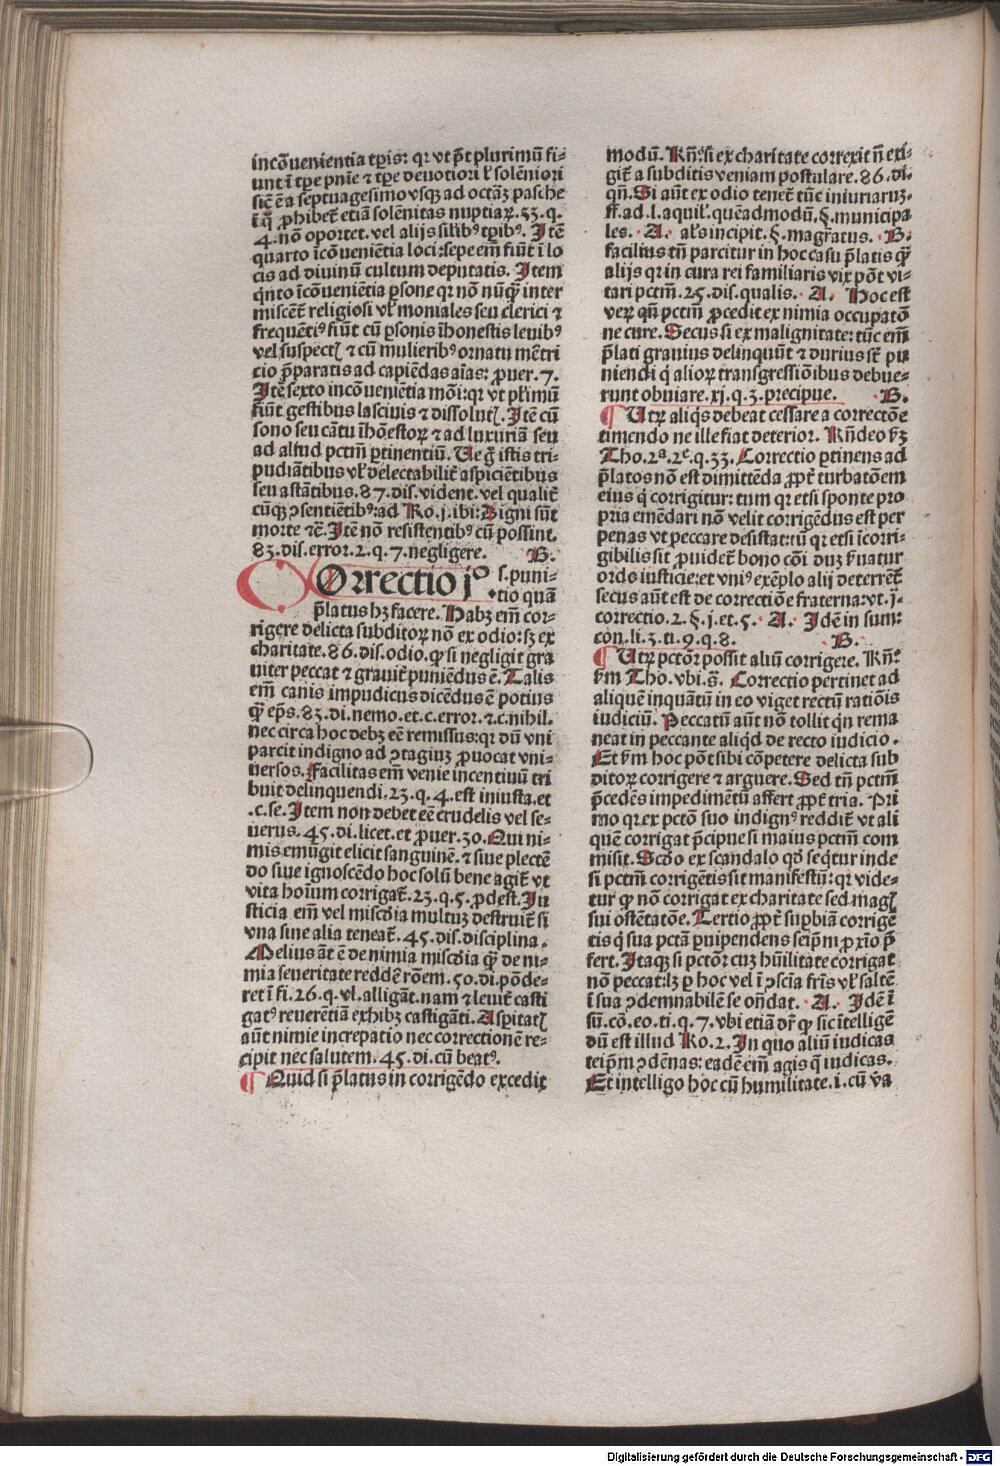 incōuenientia tꝑis: qꝛ vt p̄t plurimū fi-
unt ī tꝑe pn̄ie ⁊ tꝑe deuotiori ł solēniori
sic̄ ē a septuagesimo vsqꝫ ad octāꝫ pasche
ī q̄ ꝓhibet̄ etiā solēnitas nuptiaꝝ. 33. q.
4. nō oportet. vel alijs sil'ibꝰ tꝑibꝰ. Itē
quarto īcōueniētia loci: sepe em̄ fiūt ī lo
cis ad diuinū cultum deputatis. Item
qnto īcōueniētia ꝑsone qꝛ nō nūq̄ꝫ inter
miscēt religiosi vł moniales seu clerici ⁊
frequētiꝰ fiūt cū ꝑsonis īhonestis leuibꝰ
vel suspectꝭ ⁊ cū mulieribꝰ ornatu mētri
cio p̄paratis ad capiēdas aīas: ꝓuer. 7.
Itē sexto incōueniētia mōi: qꝛ vt pl'imū
fiūt gestibus lasciuis ⁊ dissolutꝭ. Itē cū
sono seu cātu īhōestoꝝ ⁊ ad luxuriā seu
ad aliud pctm̄ ꝑtinentiū. Ue g̊ istis tri-
pudiātibus vł delectabilit̄ aspiciētibus
seu astātibus. 87. dis. vident. vel qualit̄
cūqꝫ ꝯsentiētibꝰ: ad Ro. j. ibi: Digni sūt
morte ⁊c̄. Itē nō resistentibꝰ cū possint.
83. dis. error. 2. q. 7. negligere. B.
COrrectio jº s. puni-
tio quā
p̄latus hꝫ facere. Habꝫ em̄ cor-
rigere delicta subditoꝝ nō ex odio: sꝫ ex
charitate. 86. dis. odio. ꝙ si negligit gra
uiter peccat ⁊ grauit̄ puniēdus ē. Talis
em̄ canis impudicus dicēdus ē potius
q̄ꝫ ep̄s. 83. di. nemo. et. c. error. ⁊. c. nihil.
nec circa hoc debꝫ eē remissus: qꝛ dū vni
parcit indigno ad ꝯtagiuꝫ ꝓuocat vni-
uersos. Facilitas em̄ venie incentiuū tri
buit delinquendi. 23. q. 4. est iniusta. et
. c. se. Item non debet eē crudelis vel se-
uerus. 45. di. licet. et ꝓuer. 30. Qui ni-
mis emūgit elicit sanguinē. ⁊ siue plectē
do siue ignoscēdo hoc solū bene agit̄ vt
vita hoīum corrigat̄. 23. q. 5. ꝓdest. Iu
sticia em̄ vel mis̄c̄dia multuꝫ destruit̄ si
vna sine alia teneat̄. 45. dis. disciplina.
Melius aūt ē de nimia misc̄dia q̄ꝫ de ni-
mia seueritate reddē rōem. 50. di. pōde-
ret ī fi. 26. q. vl. alligāt. nam ⁊ leuit̄ casti
gatꝰ reuerētiā exhibꝫ castigāti. Aspitatꝭ
aūt nimie increpatio nec correctionē re-
cipit nec salutem. 45. di. cū beatꝰ.
¶ Quid si p̄latus in corrigēdo excedit
modū. Rn̄. si ex charitate correxit n̄ exi-
git̄ a subditis veniam postulare. 86. di.
qn̄. Si aūt ex odio tenet̄ tūc iniuriaruꝫ.
ff. ad. l. aquil'. quēadmodū. §. municipa
les. A. al's incipit. §. magr̄atus. B.
facilius tn̄ parcitur in hoc casu p̄latis q̄ꝫ
alijs qꝛ in cura rei familiaris vix pōt vi-
tari pctm̄. 25. dis. qualis. A. Hoc est
veꝝ qn̄ pctm̄ ꝓcedit ex nimia occupatō
ne cure. Secus si ex malignitate: tūc em̄
p̄lati grauius delinquūt ⁊ durius sūt pu
niendi q̇ alioꝝ transgressiōibus debue-
runt obuiare. xj. q. 3. precipue. B.
¶ Utꝝ aliq̇s debeat cessare a correctōe
timendo ne ille fiat deterior. Rn̄deo ẜꝫ
Tho. 2ª. 2ᵉ. q. 33. Correctio ꝑtinens ad
p̄latos nō est dimittēda ꝓpt̄ turbatōem
eius q̇ corrigitur: tum qꝛ etsi sponte pro
pria emēdari nō velit corrigēdus est per
penas vt peccare desistat: tū qꝛ etsi īcorri-
gibilis sit ꝓuidet̄ bono cōi duꝫ ẜuatur
ordo iusticie: et vniꝰ exēplo alij deterrēt̄
secus aūt est de correctiōe fraterna: vt. j.
correctio. 2. §. j. et. 5. A. Idē in sum:
con. li. 3. ti. 9. q. 8. B.
¶ Utꝝ pctōr possit aliū corrigere. Rn̄.
ẜm Tho. vbi. s̄. Correctio pertinet ad
aliquē inquātū in eo viget rectū ratiōis
iudiciū. Peccatū aūt nō tollit qn̄ rema
neat in peccante aliq̇d de recto iudicio.
Et ẜm hoc pōt sibi cōpetere delicta sub
ditoꝝ corrigere ⁊ arguere. Sed tn̄ pctm̄
p̄cedēs impedimētū affert ꝓpt̄ tria. Pri
mo qꝛ ex pctō suo indignꝰ reddit̄ vt ali
quē corrigat p̄cipue si maius pctm̄ com
misit. Scd̄o ex scandalo qd̄ seq̇tur inde
si pctm̄ corrigētis sit manifestū: qꝛ vide-
tur ꝙ nō corrigat ex charitate sed magꝭ
sui ostētatōe. Tertio ꝓpt̄ suꝑbiā corrigē
tis q̇ sua pctā ꝑuipendens seip̄m ꝓxīo p̄
fert. Itaqꝫ si pctōr cuꝫ hūilitate corrigat
nō peccat: lꝫ ꝑ hoc vel ī ꝯsciā fr̄is vł saltē
ī sua ꝯdemnabilē se on̄dat. A. Idē ī
sū. cō. eo. ti. q. 7. vbi etiā dr̄ ꝙ sic ītelligē
dū est illud Ro. 2. In quo aliū iudicas
teip̄m ꝯdēnas: eadē em̄ agis q̇ iudicas.
Et intelligo hoc cū humilitate. i. cū va
Digitalisierung gefördert durch die Deutsche Forschungsgemeinschaft - DFG